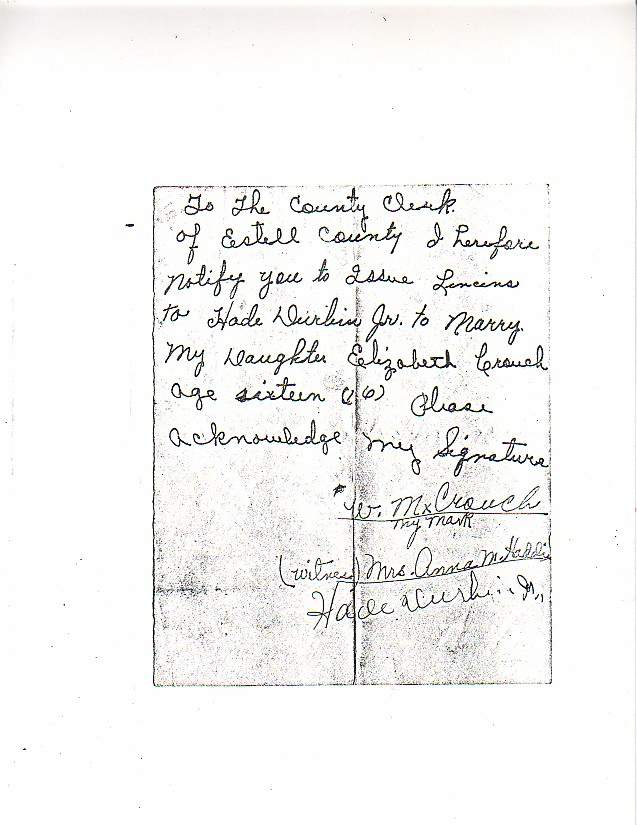 To The County Clerk.
of Estell County I herefore
notify you to Issue Lincins
to Hade Durbin Jr. to Marry.
My Daughter Elizabeth Crouch
age sixteen (16) Please
acknowledge my Signature
W. M x Crouch
my mark
(witness) Mrs. Anna M.
Hade Durbin Jr.